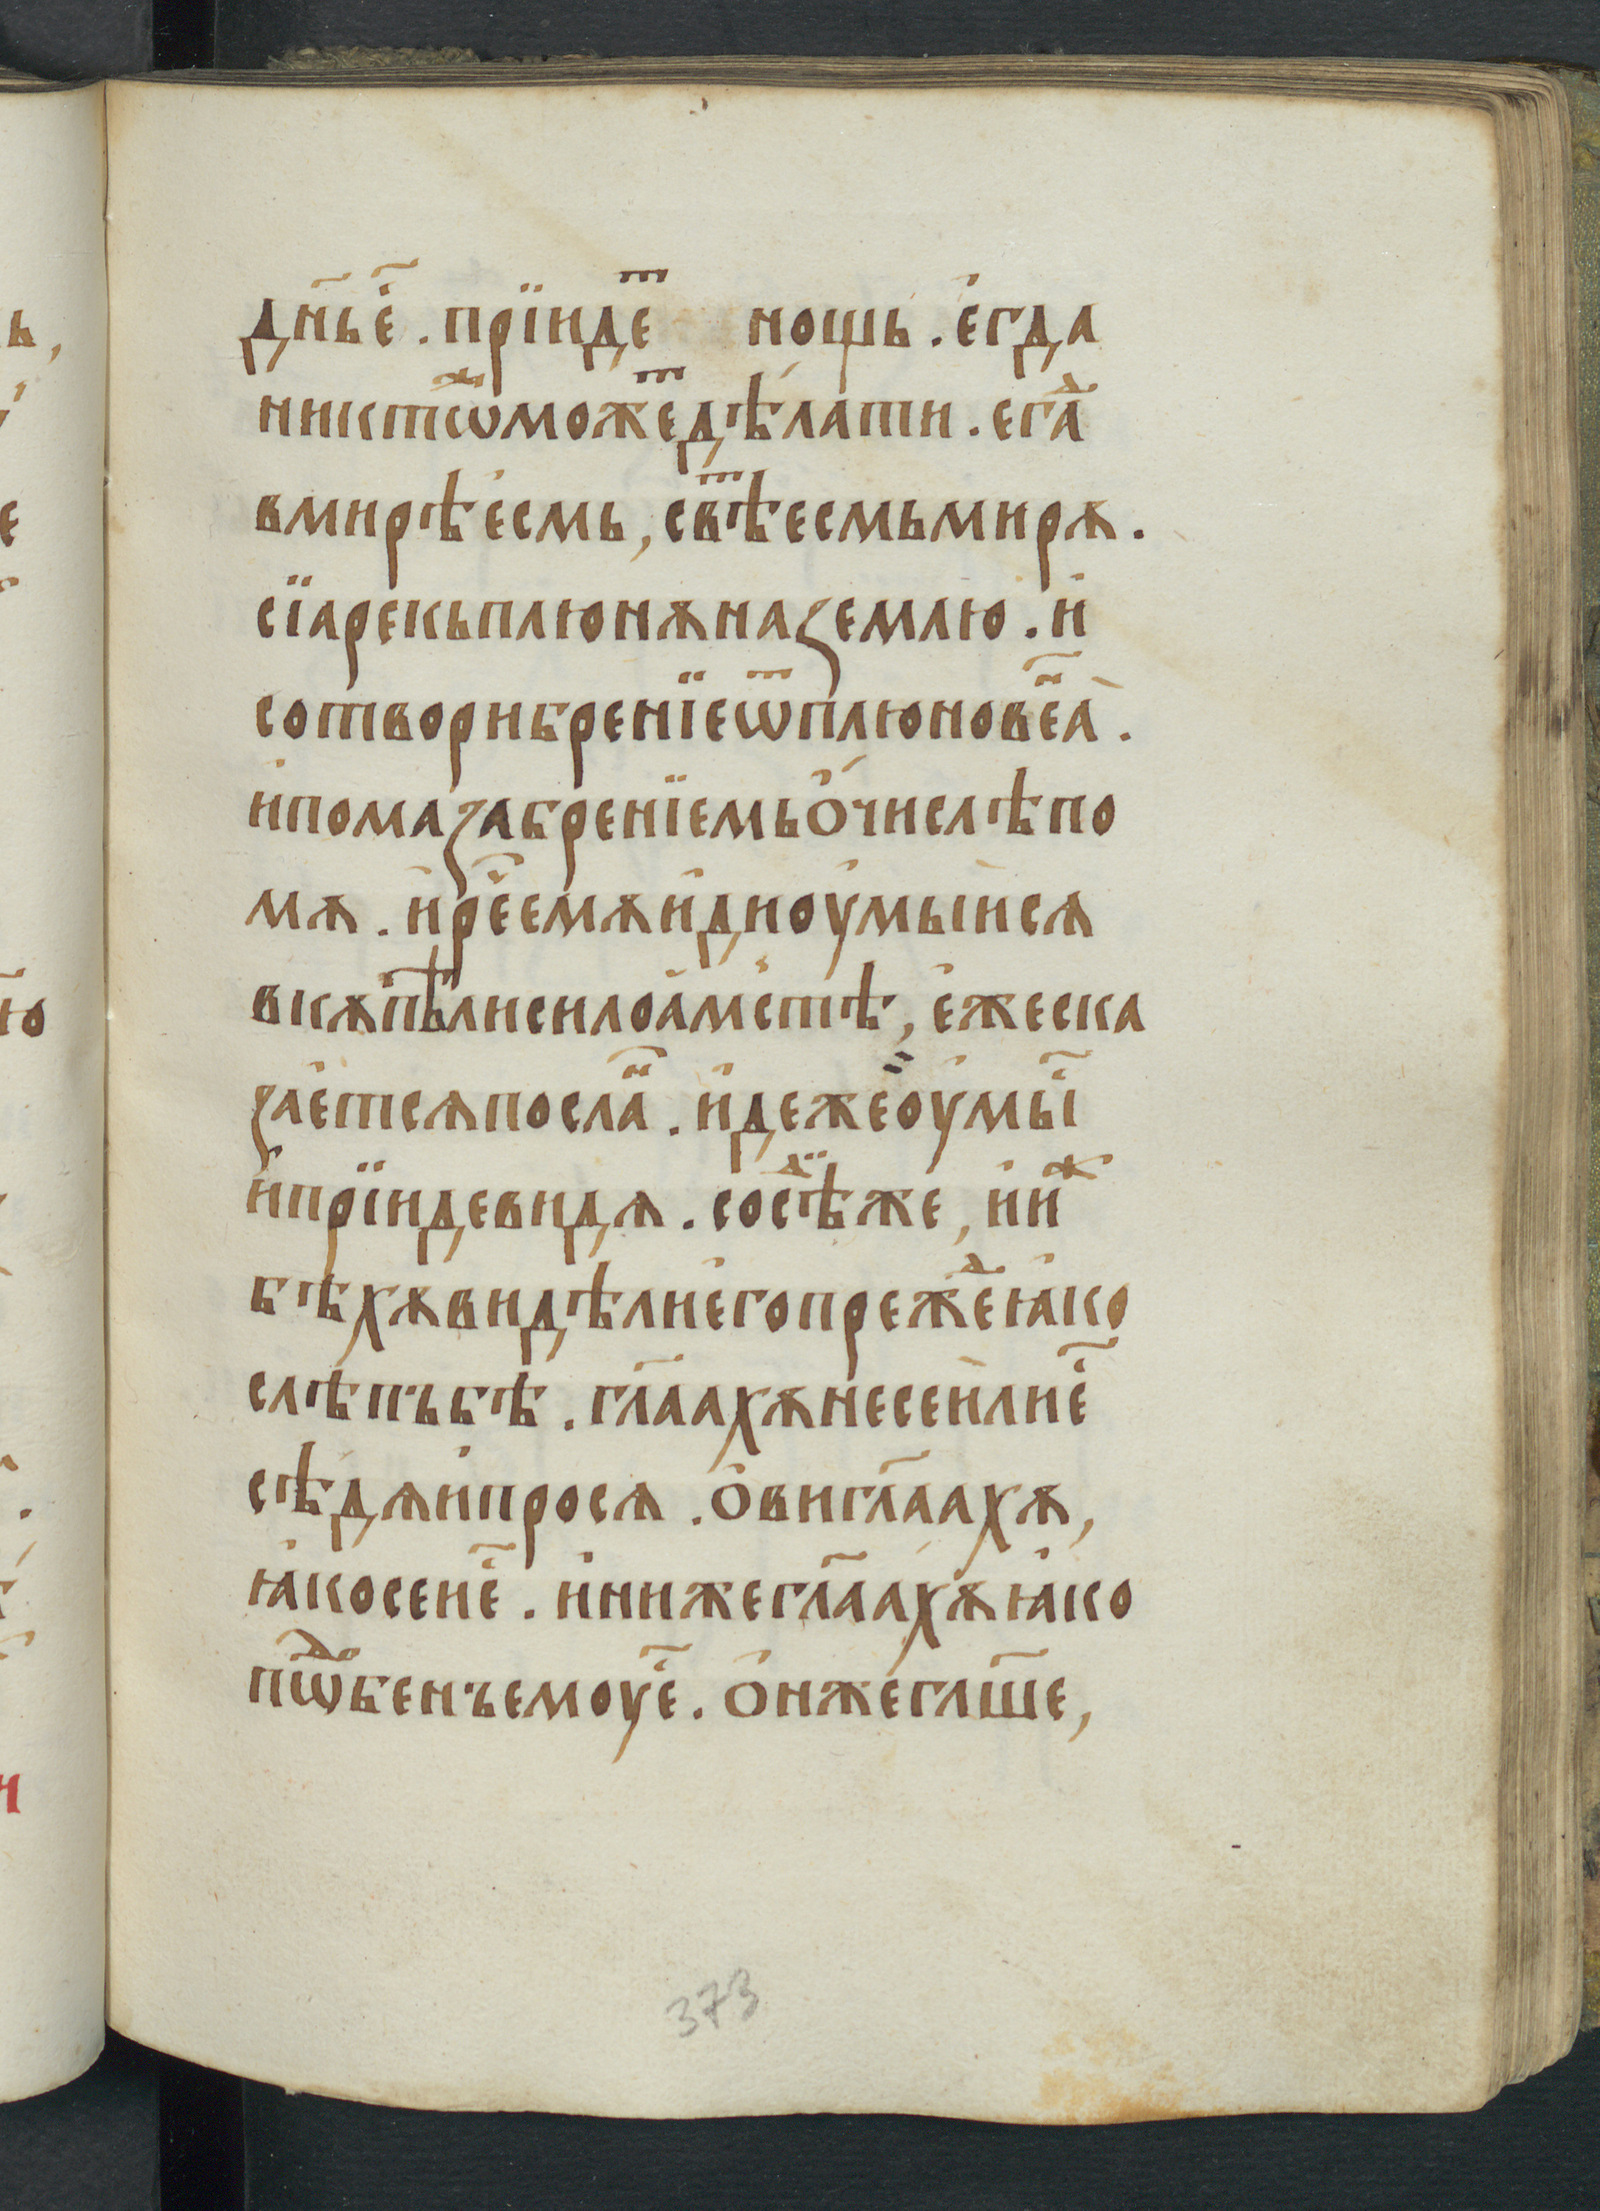 дн҃ье҃ . прїидеⷮ нощь . е҆гда
никтѡⷤможеⷮдѣ́лати . егⷣа
вмирѣе҆смь , свⷮѣесмьмирѫ .
сїарекьплюнѫнаꙁемлю . и҆
сотворибренїеѿплюновⷩ҇еа̀ .
и҆помаꙁабренїемьо҆́числѣпо
мѫ . и҆ре҃емѫи҆дноумыисѧ
вкѫпⷣѣлисилоа҆мⷭстѣ , е҆жеска
ꙁае҆тсѧпослаⷩ҇ . и҆дежео҆умы҃
и҆прїидевидѧ . сосⷣѣже , и҆иⷤ
бѣхѫвидѣлие҆гопреⷣжеꙗ҆ко
слѣпъбѣ . гл҃аахѫнесеи҆лие҃
сѣдѧи҆просѧ . о҆вигл҃аахѫ ,
ꙗ҆косеие҃ . и҆нижегл҃аахѫꙗ҆ко
пѡⷣбенъемоуе҃ . о҆нжегл҃ше ,
373